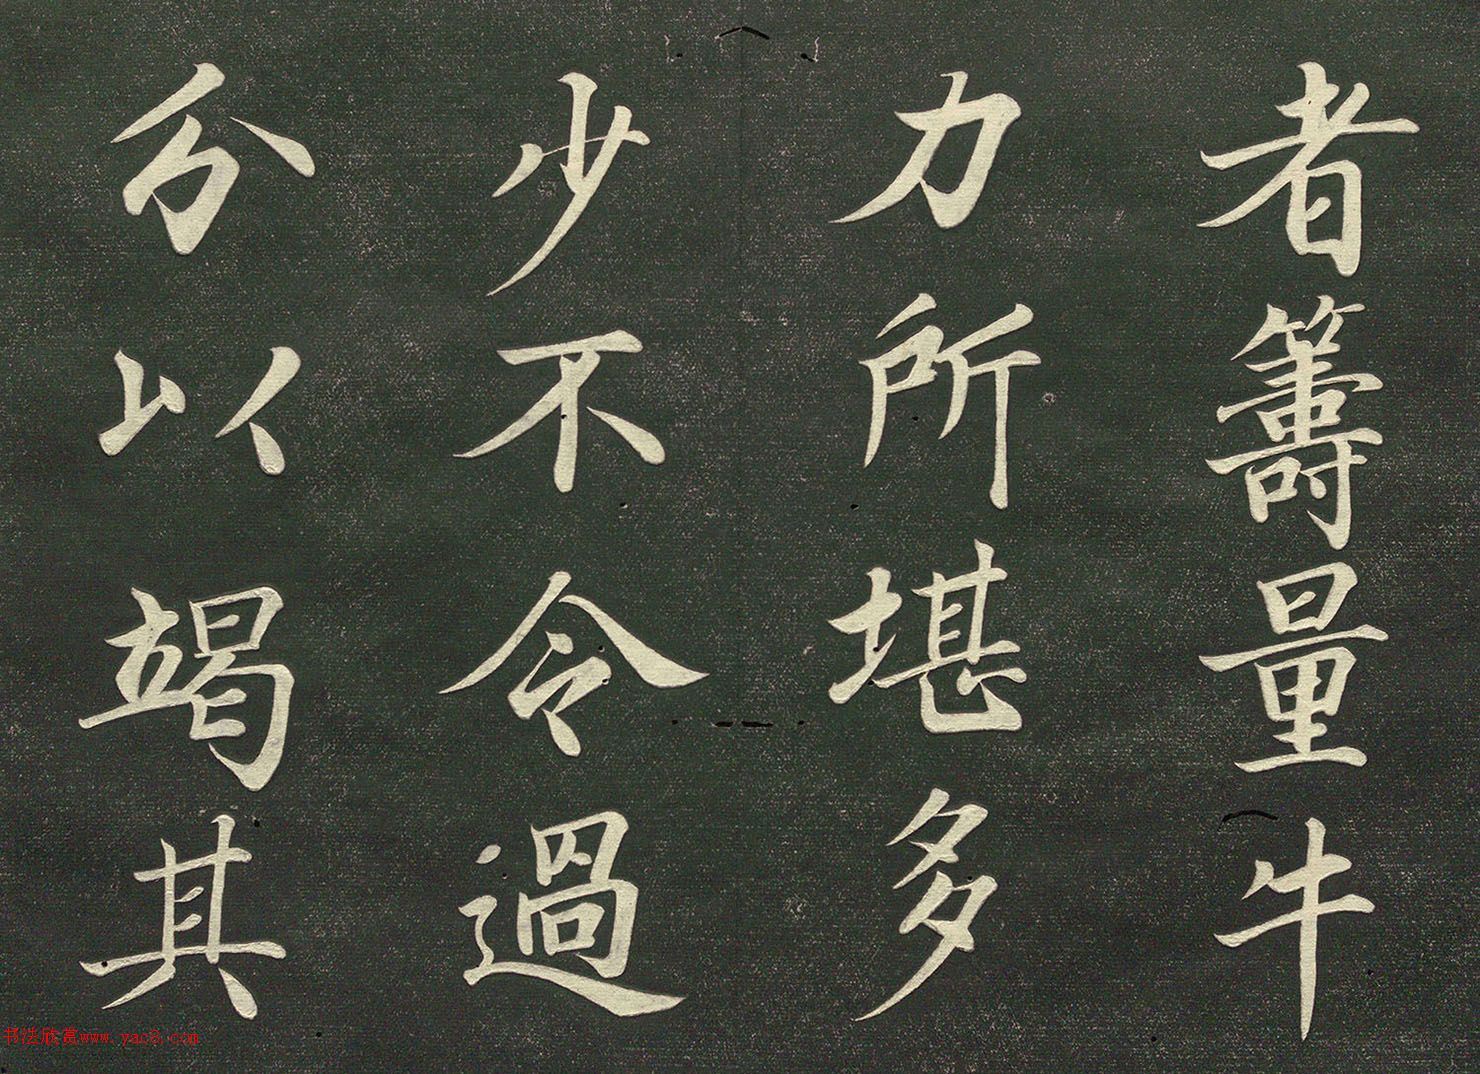 者籌量牛
力所堪多
少不令過
分以竭其
书法欣赏www.yac8.com